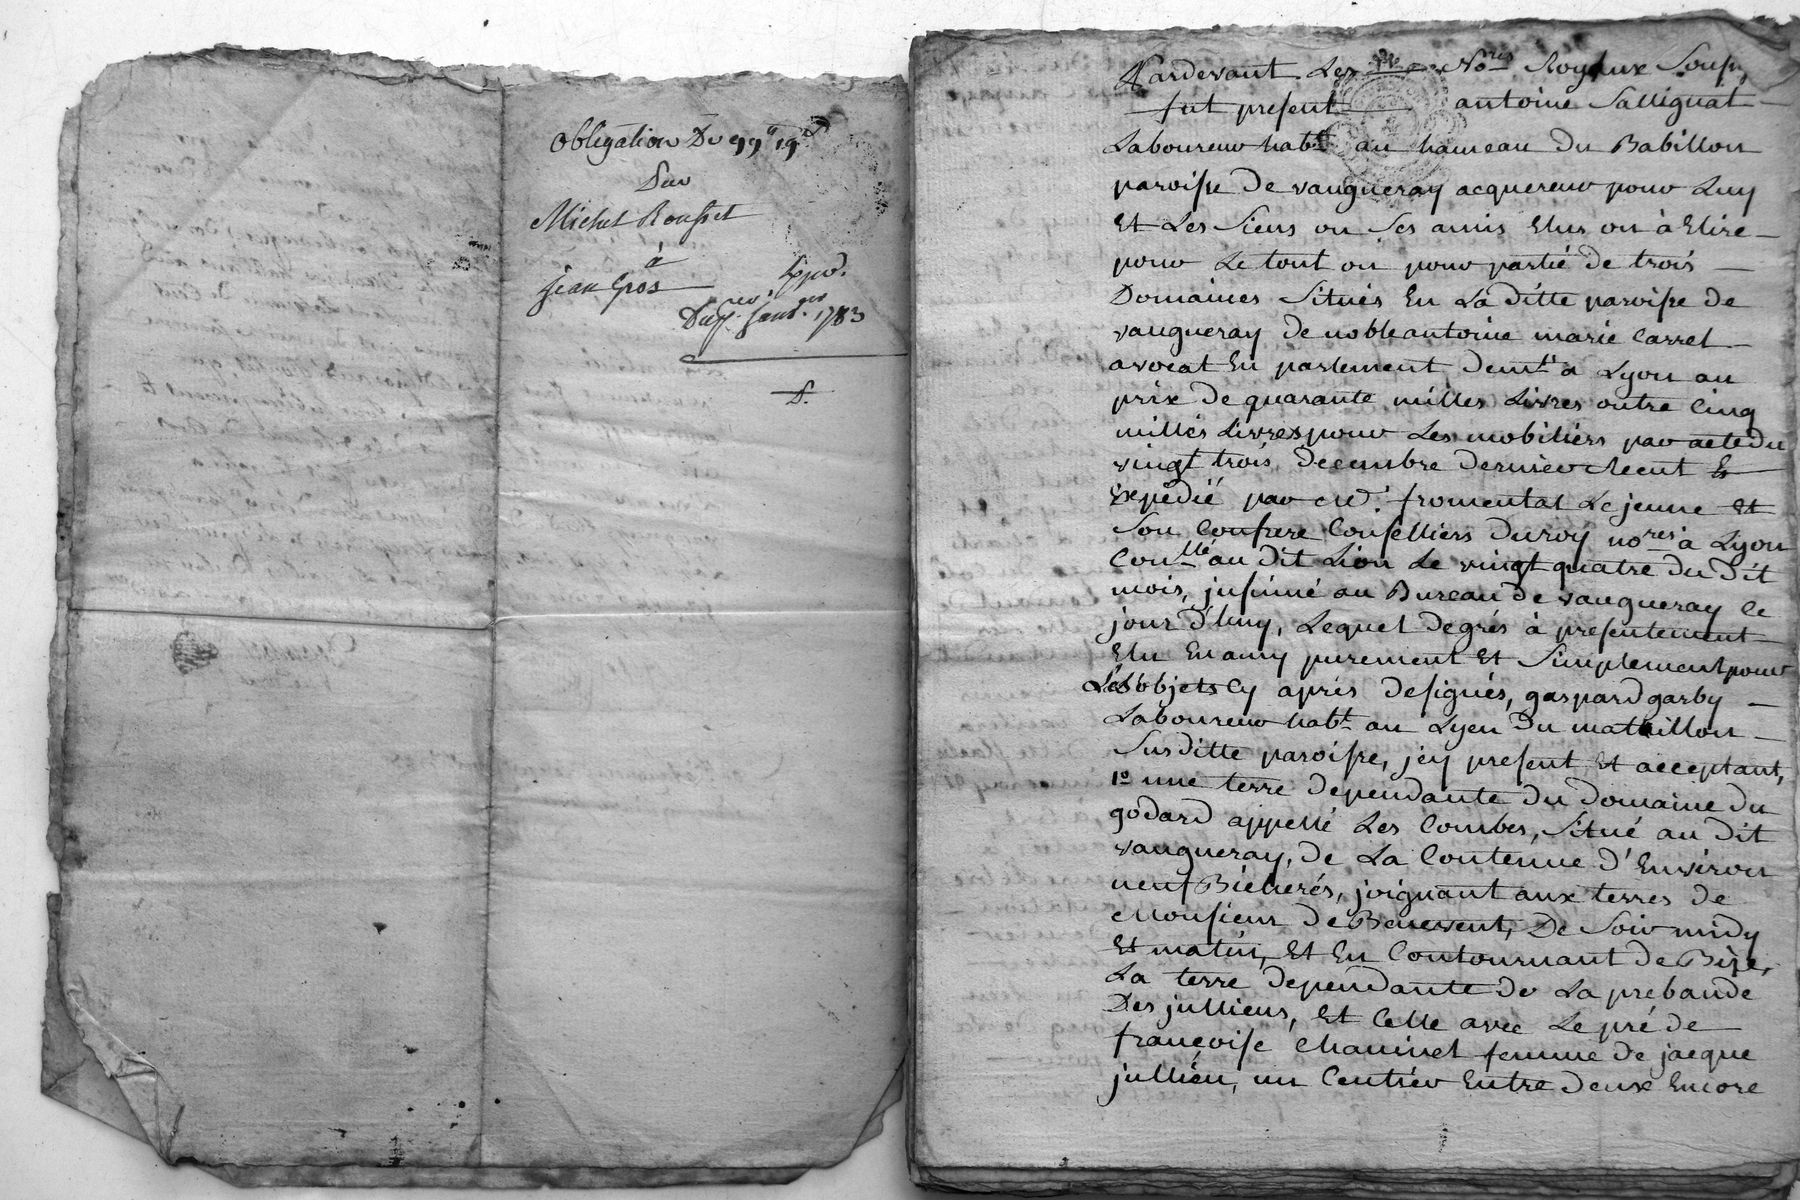 obligation De 99# 19s
Sur
Michel Rousset
à
jean Gros
Exped.
Du 7e janv. 1783
D.
Pardevant Les Nores Royaux Sousp
fut present antoine Sallignat
Laboureur habt au hameau du Babillon
paroisse de vaugneray acquereur pour Luy
Et Les Siens ou Ses amis Elus ou à Elire
pour Le tout ou pour partié de trois
Domaines Situés En La ditte paroisse de
vaugneray de noble antoine marie Carret
avocat En parlement demt a Lyon au
prix de quarante milles Livres outre Cinq
millés Livres pour Les mobiliérs par acte du
vingt trois decembre dernier Receut Et
Expedié par Me. fromental Le jeune et
Son Confrere Conseilliers du roy nores à Lyon
Conllé au dit Lion Le vingt quatre du dit
mois, jnsinué au Bureau de vaugneray Ce
jour d'huy, Lequel de grés à presentement
Elu En amy purement Et Simplement pour
Les objets Cy aprés designés, gaspard garby
Laboureur habt au Lyeu du mataillon
Susditte paroisse, jcy present Et acceptant,
1o une terre dependante du domaine du
godard appellé Les Combes, Situé au dit
vaugneray, de La Contenue d'Environ
neuf Bicherés, joignant aux terres de
Monsieur de Benevent, De Soir midy
Et matin, Et En Contournant de Bize,
La terre dependante de La prebande
Des julliens, Et Celle avec Le pré de
françoise Chaninel femme de jacque
jullién, un Centiér Entre deux Encore